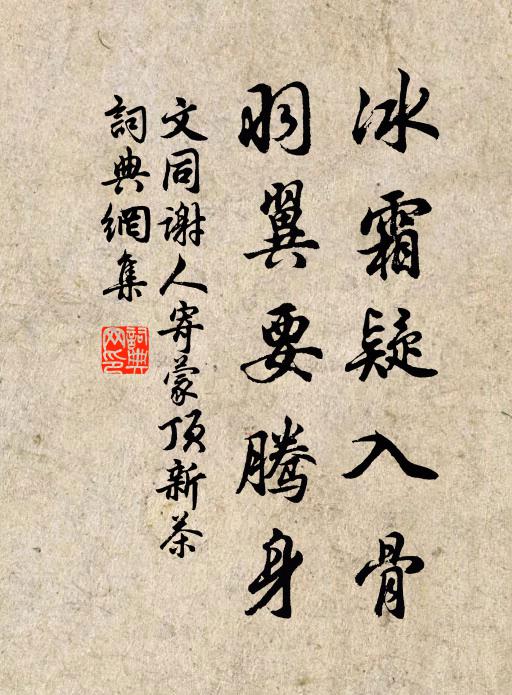 冰霜疑入骨
羽翼要騰身
文同謝人寄蒙頂新茶
詞典網集
詞典網印